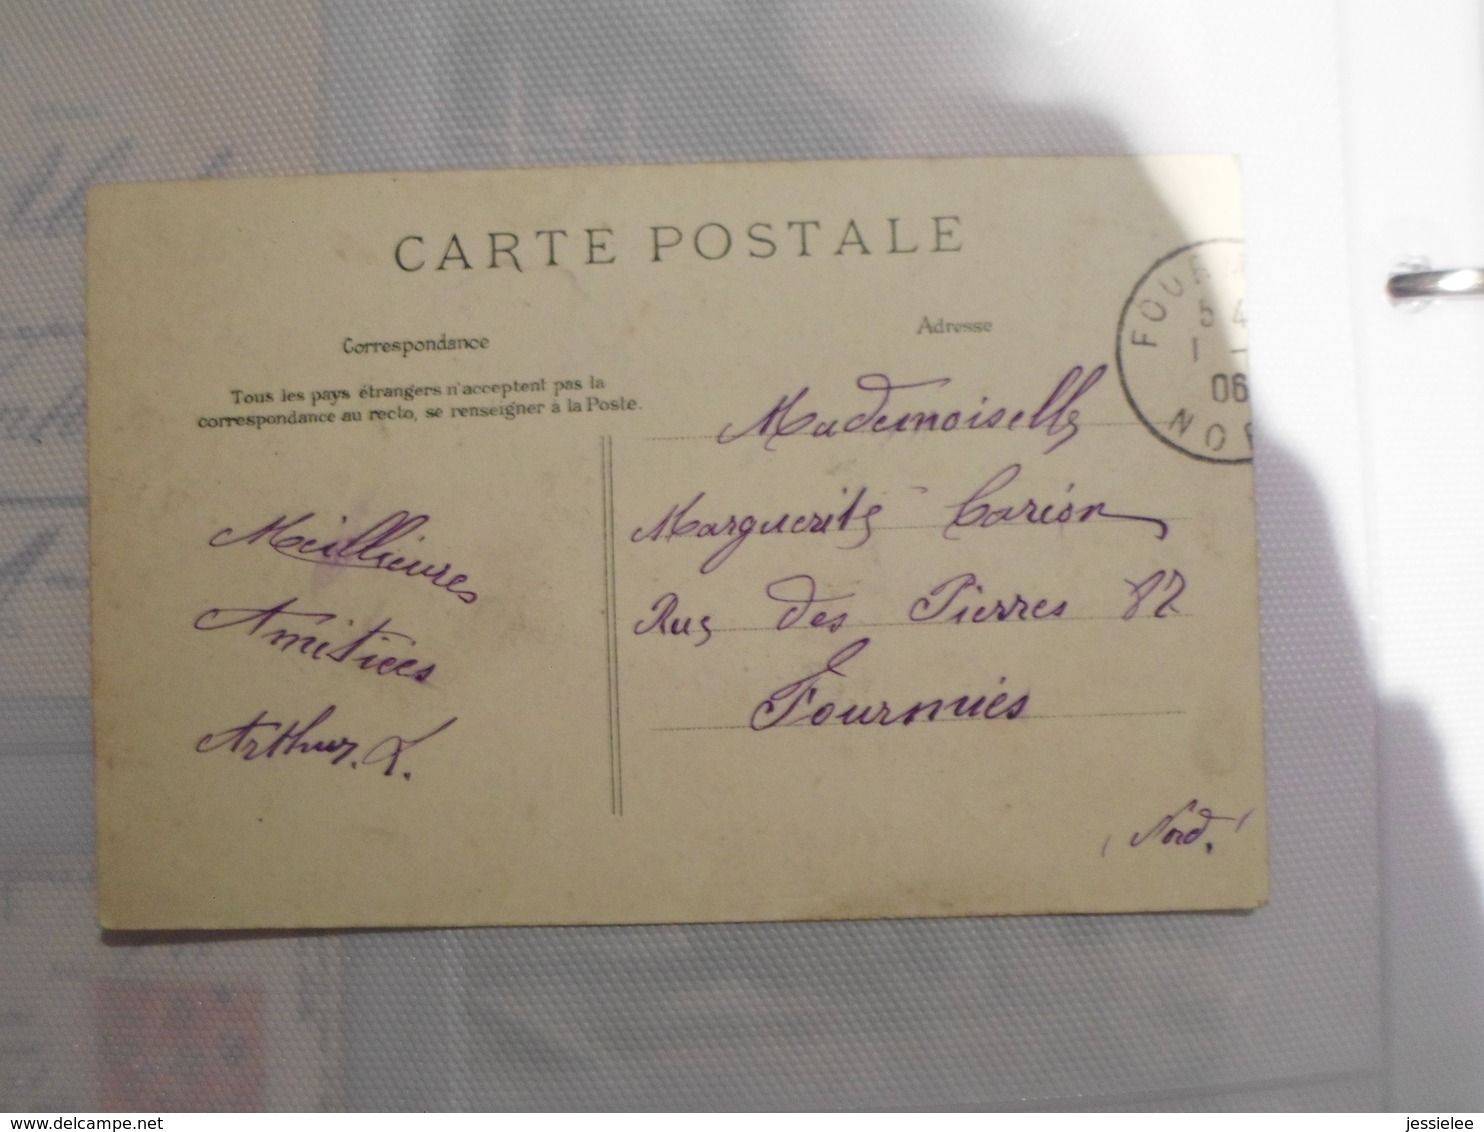 CARTE POSTALE
Correspondance
Adresse
Tous les pays étrangers n'acceptent pas la
correspondance au recto, se renseigner à la Poste.
Meillieures
Amitiées
Arthur. L.
Mademoiselle
Marguerite Carion
Rue des Pierres 82
Fourmies
(Nord.)
FOUR
5 4
1 -
06
NOR
delcampe.net
jessielee